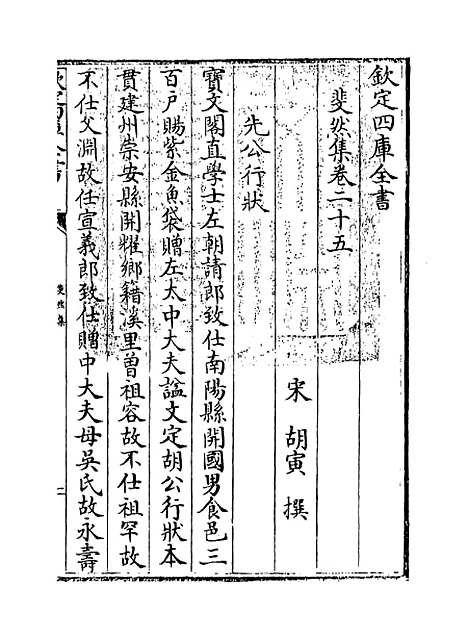 欽定四庫全書
斐然集卷二十五
宋 胡寅 撰
先公行狀
寶文閣直學士左朝請郎致仕南陽縣開國男食邑三
百戶賜紫金魚袋贈左太中大夫諡文定胡公行狀本
貫建州崇安縣開耀鄉籍溪里曽祖容故不仕祖罕故
不仕父淵故任宣義郎致仕贈中大夫母吳氏故永壽
欽定四庫全書
斐然集